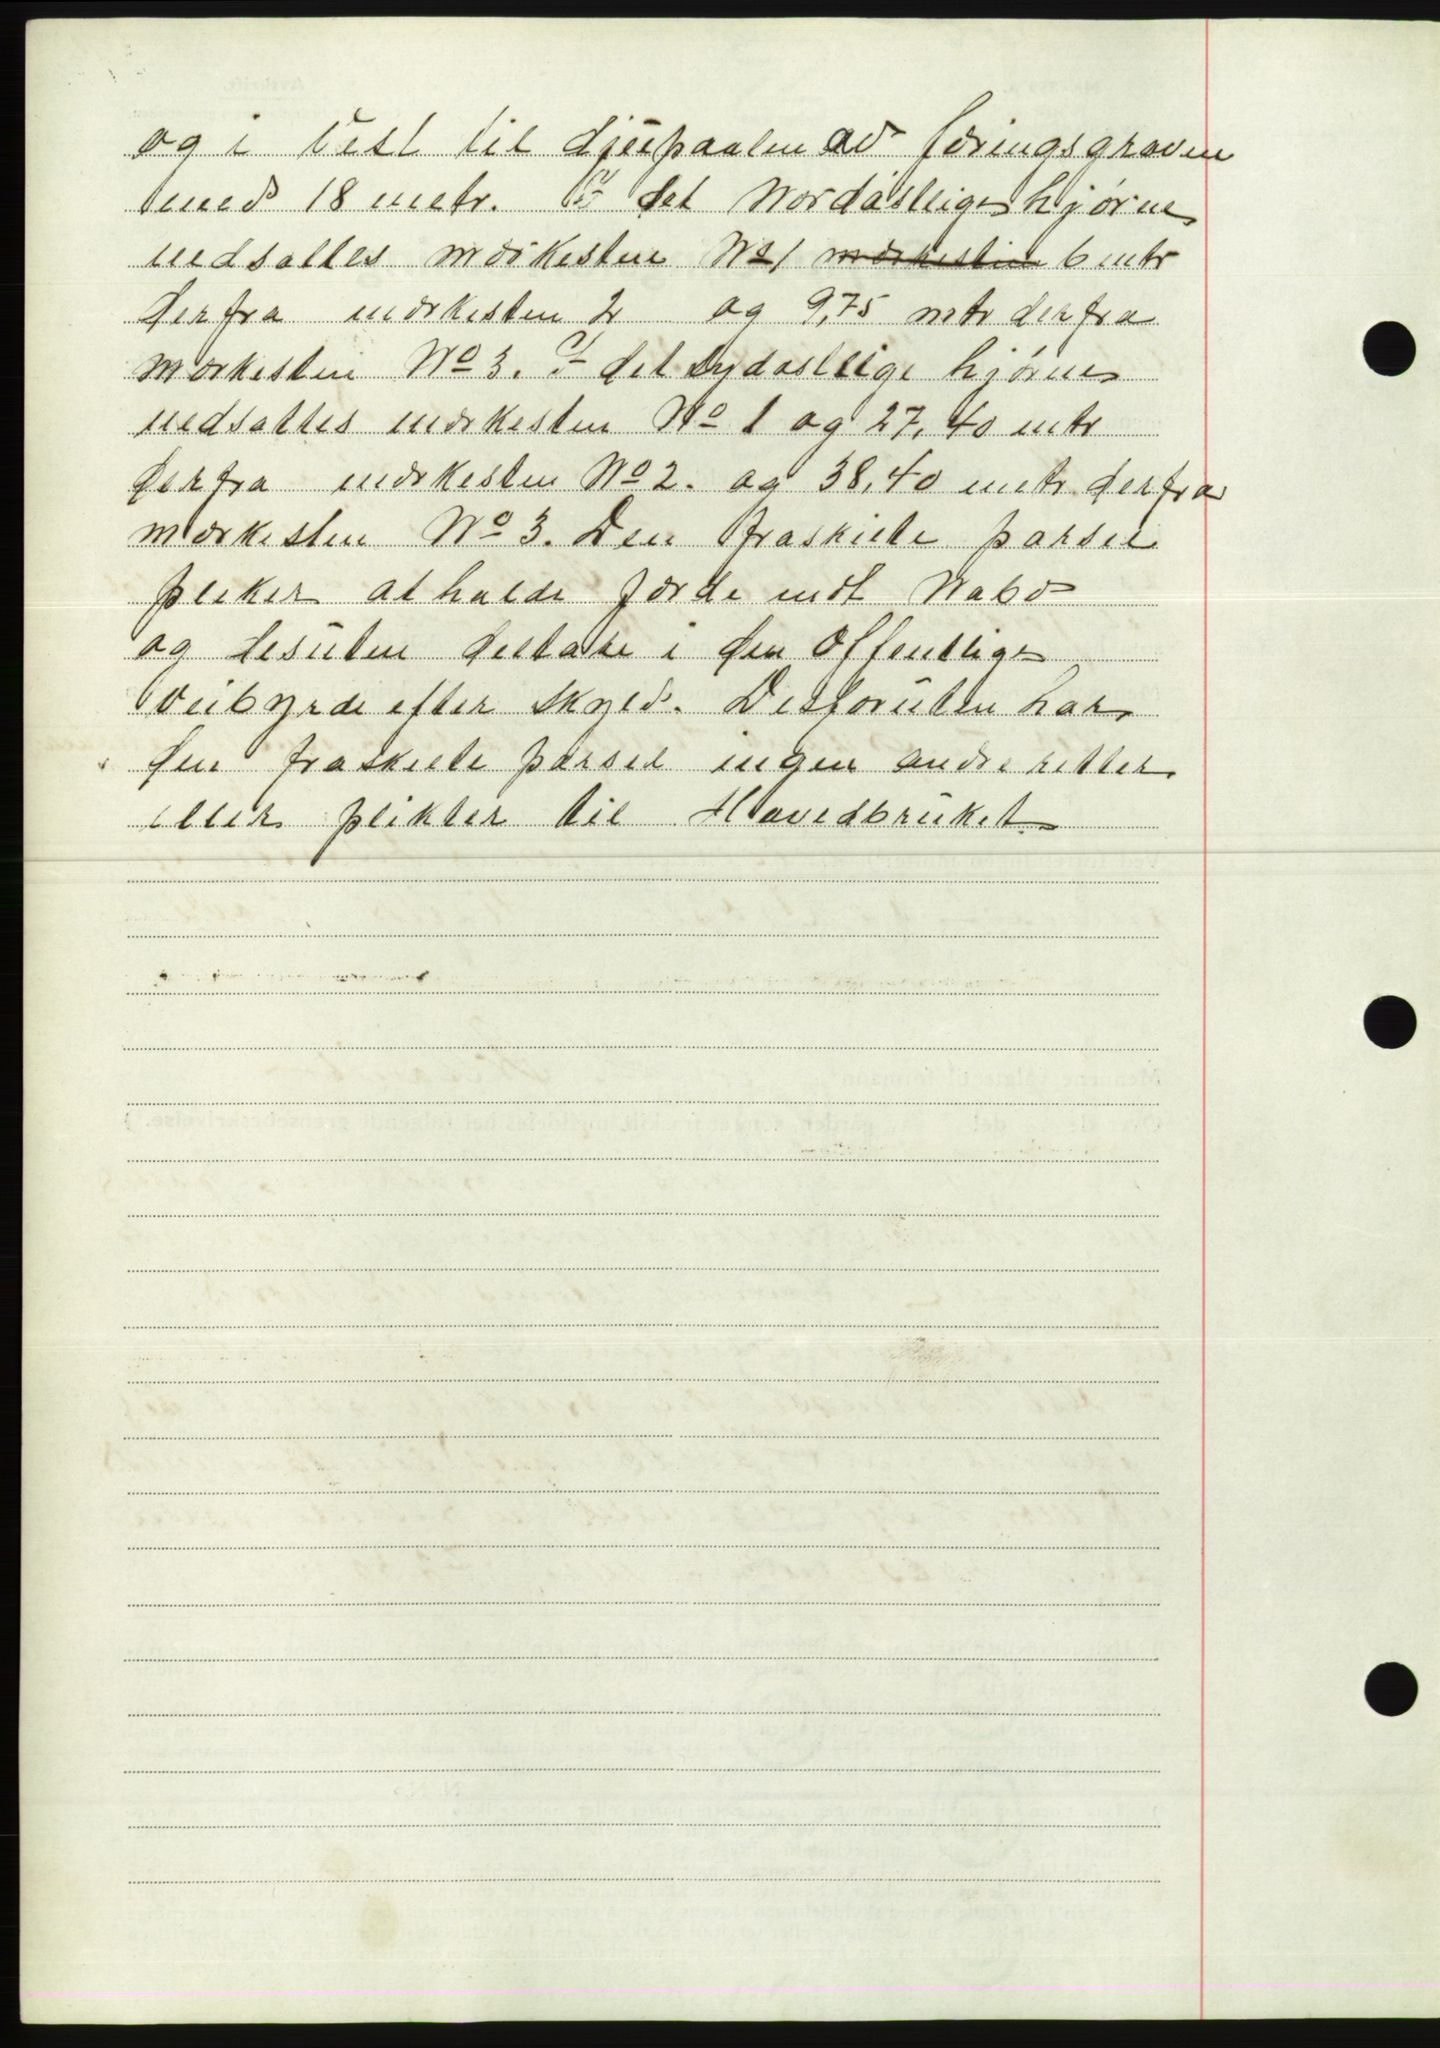 og i vest til djupaalen av føringsgraven
med 18 metr. I det Nordøstlige hjørne
nedsattes mærkesten No 1 mærkesten 6 mtr
derfra mærkesten 2 og 9,75 mtr derfra
mærkesten No 3. I det sydøstlige hjørne
nedsattes mærkesten No 1 og 27,40 mtr
derfra mærkesten No 2. og 38,40 metr derfra
mærkesten No 3. Den fraskilte parsel
pliker at halde jærde mot Nabo
og desuten deltake i den Offentlige
veibyrde efter skyld. Desforuten har
den fraskilte parsel ingen andre retter
eller plikter til Hovedbruket